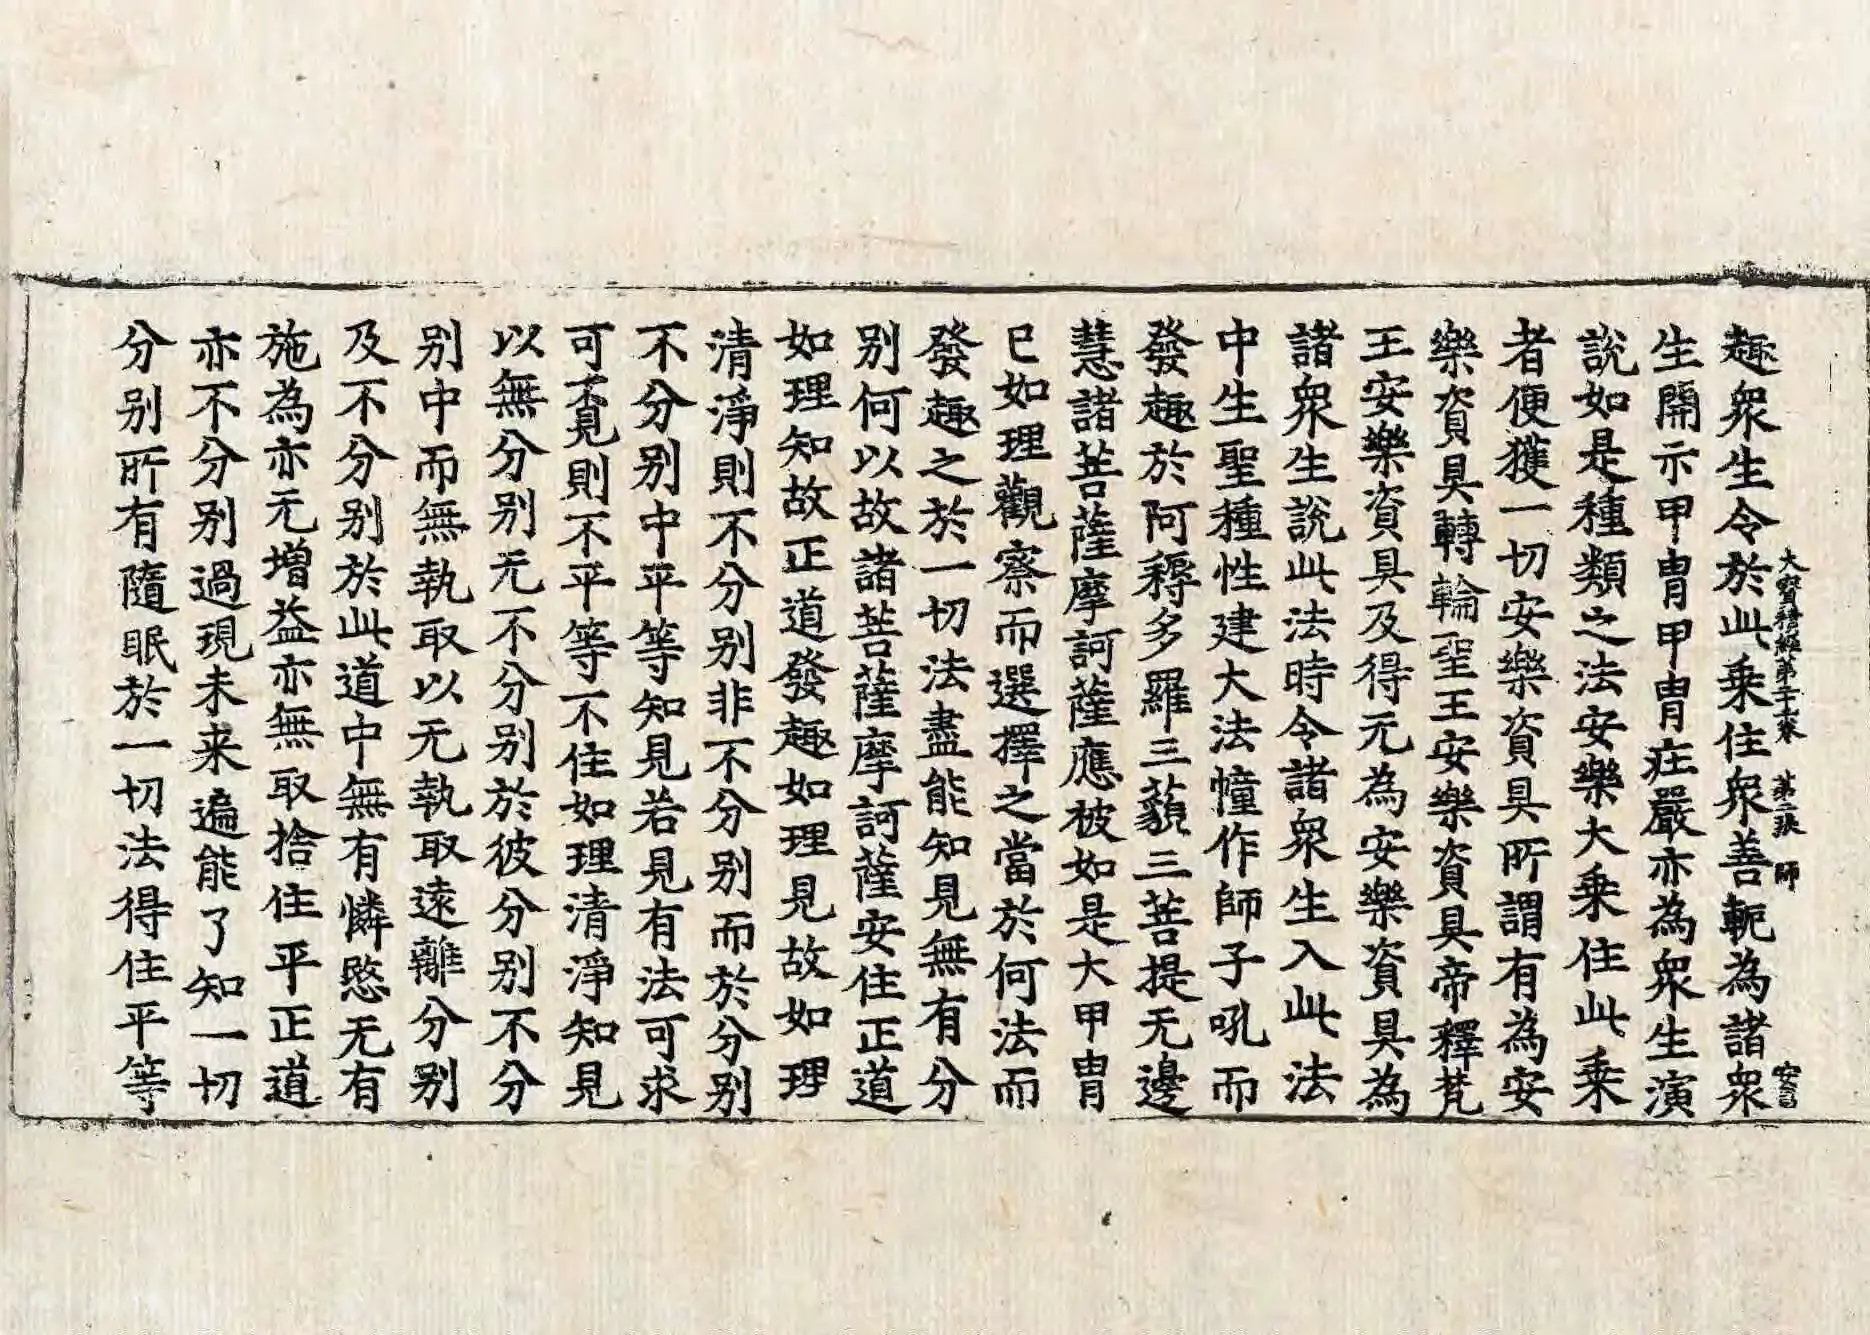 大寳積經第二十一卷 第二張 師
趣衆生令於此乗住衆善軛為諸衆
生開示甲冑甲冑庄嚴亦為衆生演
說如是種類之法安樂大乗住此乗
者便獲一切安樂資具所謂有為安
樂資具轉輪聖王安樂資具帝釋梵
王安樂資具及得无為安樂資具為
諸衆生說此法時令諸衆生入此法
中生聖種性建大法幢作師子吼而
發趣於阿耨多羅三藐三菩提无邊
慧諸菩薩摩訶薩應被如是大甲冑
已如理觀察而選擇之當於何法而
發趣之於一切法盡能知見無有分
别何以故諸菩薩摩訶薩安住正道
如理知故正道發趣如理見故如理
清淨則不分别非不分别而於分别
不分别中平等知見若見有法可求
可不見則不平等不住如理清淨知見
以無分别无不分别於彼分别不分
别中而無執取以无執取遠離分别
及不分别於此道中無有憐愍无有
施為亦无增益亦無取捨住平正道
亦不分别過現未来遍能了知一切
分别所有隨眠於一切法得住平等